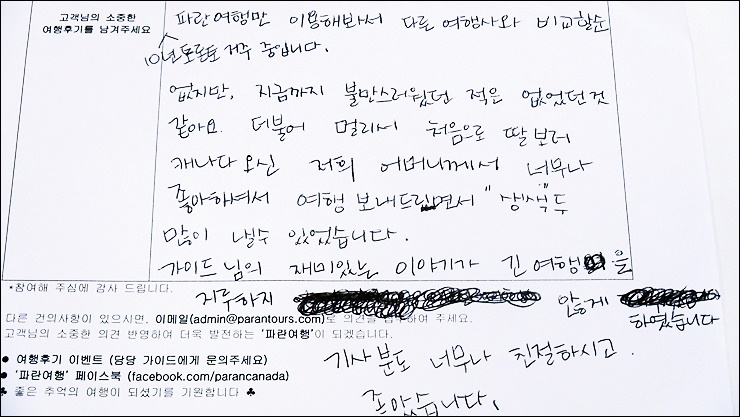 고객님의 소중한
여행후기를 남겨주세요
파란여행만 이용해봐서 다른 여행사와 비교할순
10년 토론토 거주 중입니다.
없지만, 지금까지 불만스러웠던 적은 없었던것
같아요. 더불어 멀리서 처음으로 딸 보러
캐나다 오신 저희 어머니께서 너무나
좋아하셔서 여행 보내드리면서 "생색"두
많이 낼수 있었습니다.
가이드님의 재미있는 이야기가 긴 여행을
지루하지 않게 하였습니다
기사분도 너무나 친절하시고
좋았습니다.
*참여해 주심에 감사 드립니다.
다른 건의사항이 있으시면, 이메일(admin@parantours.com)로 의견을 주세요.
고객님의 소중한 의견 반영하여 더욱 발전하는 '파란여행'이 되겠습니다.
● 여행후기 이벤트 (담당 가이드에게 문의주세요)
● '파란여행' 페이스북 (facebook.com/parancanada)
♣ 좋은 추억의 여행이 되셨기를 기원합니다 ♣